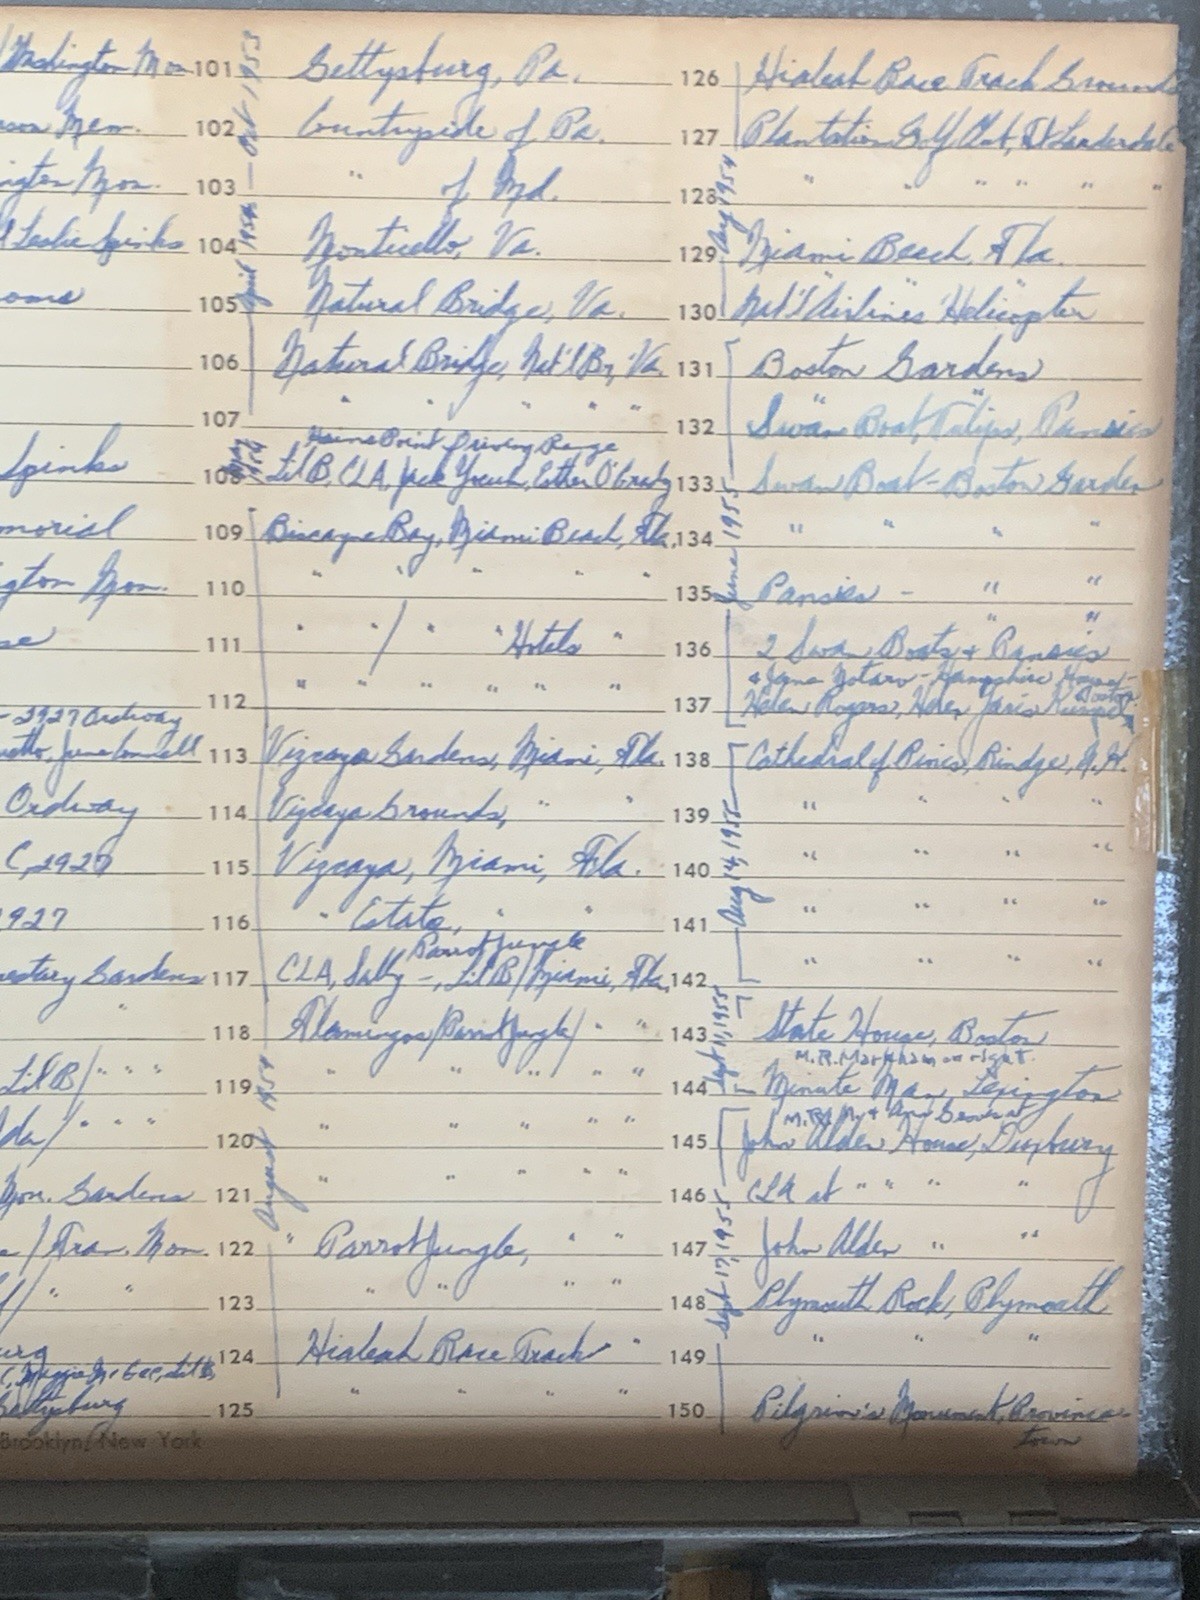 Washington Mon
Mem.
ington Mon.
Leslie Spinks
ooms
Spinks
morial
ngton Mon.
se
- 2927 Ordway
June Connell
Ordway
C, 2927
927
Gardens
"
Lil B / " " "
/ " " "
Mon. Gardens
/ Fran. Mon.
/ " "
urg
Maggie McGee, Lil B,
Gettysburg
Brooklyn, New York
Oct 1953
April 1954
101 Gettysburg, Pa.
102 Countryside of Pa.
103 " of Md.
104 Monticello, Va.
105 Natural Bridge, Va.
106 Natural Bridge, Nat'l Br, Va.
107 " " " " "
May 1954
Hains Point Driving Range
108 Lil B, CLA, Jack Esther O'Grady
109 Biscayne Bay, Miami Beach, Fla,
110 " " " " "
111 " " / " " Hotels "
112 " " " " " "
113 Vizcaya Gardens, Miami, Fla.
114 Vizcaya Grounds, " "
115 Vizcaya, Miami, Fla.
116 " Estate, " "
Parrot Jungle
117 CLA, Sally -, Lil B / Miami, Fla,
118 Flamingos / Parrot Jungle / " "
August 1954
119 " " " " "
120 " " " " "
121 " " " " "
122 " Parrot Jungle, " "
123 " " " "
124 Hialeah Race Track "
125 " " " "
126 Hialeah Race Track Grounds
127 Plantation Golf Club, Ft Lauderdale
Aug 1954
128 " " " " " "
129 Miami Beach, Fla.
130 Nat'l Airlines Helicopter
131 Boston Gardens
132 Swan Boat, Tulips, Pansies
133 Swan Boat - Boston Garden
134 " " " "
June 1955
135 Pansies - " "
136 2 Swan Boats & Pansies " "
& Jane Notaro - Hampshire House - Boston
137 Helen Rogers, Helen Jaris
138 Cathedral of Pines, Rindge, N.H.
Aug 14, 1955
139 " " " "
140 " " " "
141 " " " "
142 " " " "
Sept 11, 1955
143 State House, Boston
M.R. Markham on right.
144 Minute Man, Lexington
M.R.M. & Ann Groves at
145 John Alden House, Duxbury
146 CLA at " " " "
Sept 17, 1955
147 John Alden " "
148 Plymouth Rock, Plymouth
149 " " "
150 Pilgrim's Monument, Province-
town